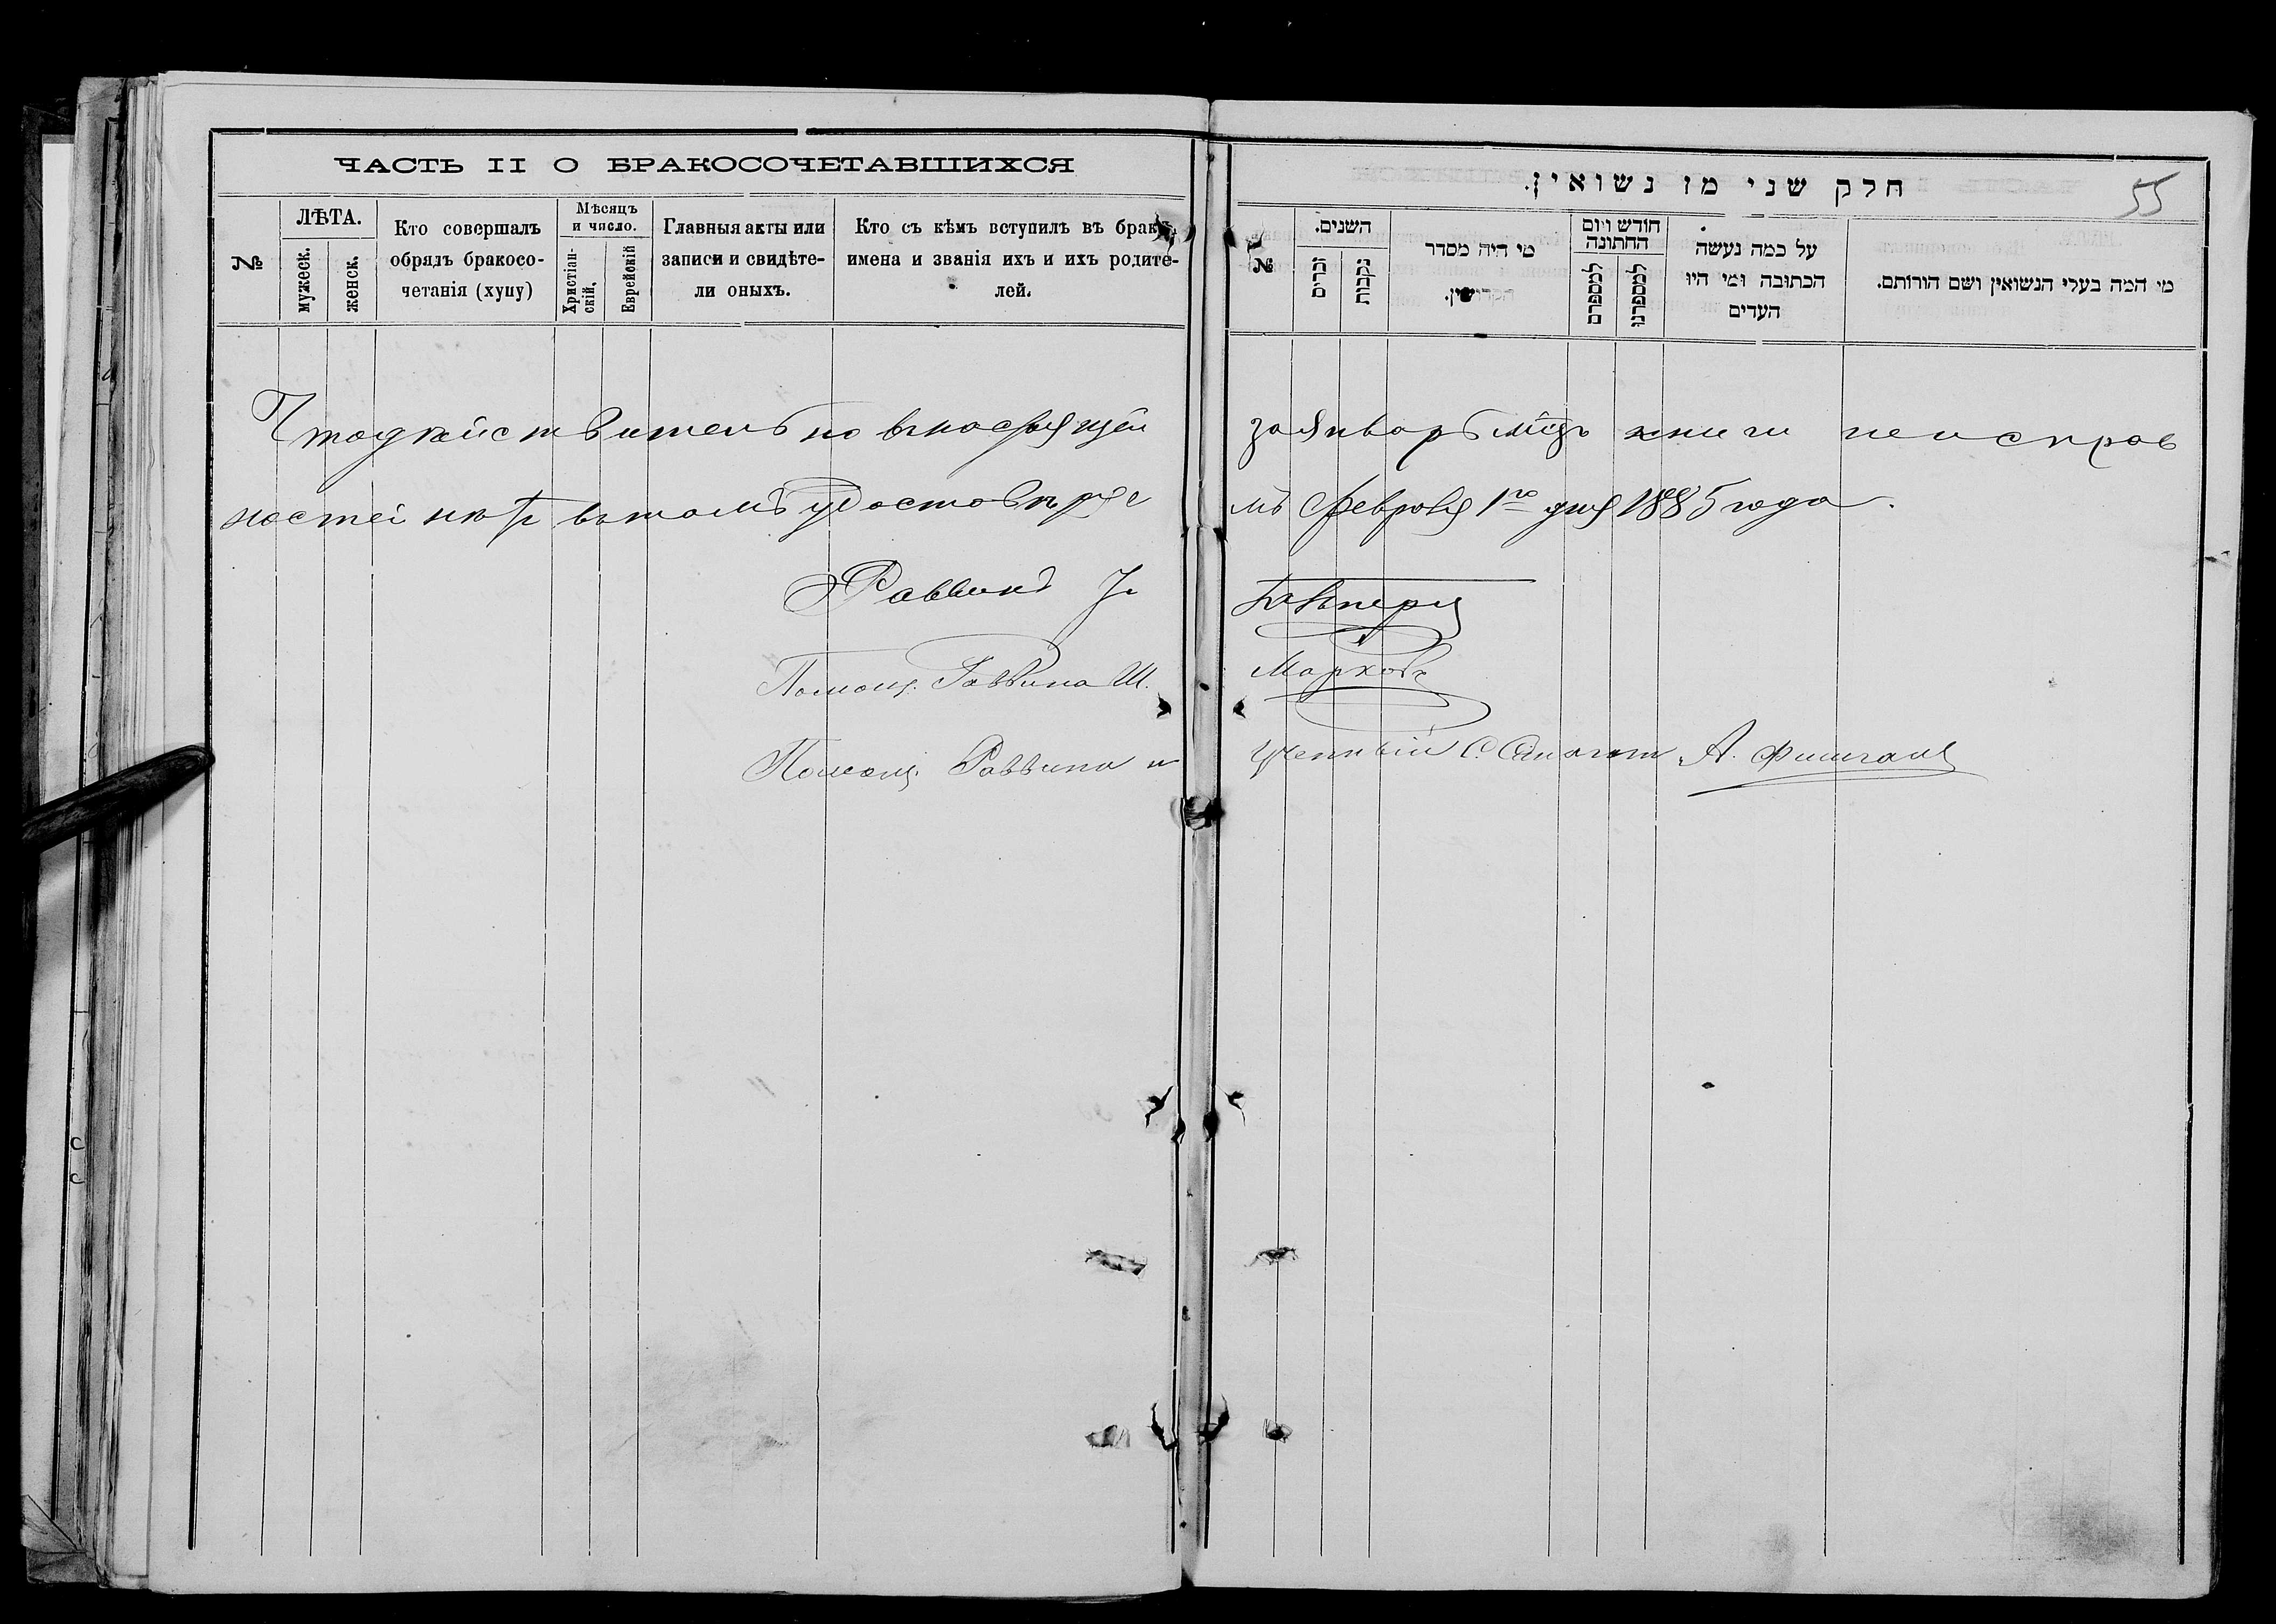 ЧАСТЬ II О БРАКОСОЧЕТАВШИХСЯ
№
ЛѢТА.
мужеск.
женск.
Кто совершалъ
обрядъ бракосо-
четанія (хупу)
Мѣсяцъ
и число.
Христіан-
скій,
Еврейскій
Главныя акты или
записи и свидѣте-
ли оныхъ.
Кто съ кѣмъ вступилъ въ бракъ
имена и званія ихъ и ихъ родите-
лей.
חלק שני מן נשואין.
55
№
השנים.
זכרים
נקבות
מי היה מסדר
הקדושין.
חודש ויום
החתונה
למספרם
למספרנו
על כמה נעשה
הכתובה ומי היו
העדים
מי המה בעלי הנשואין ושם הורותם.
Что дѣйствительно въ настоящей за Январь мѣсяцъ книги неисправ
ностей нѣтъ въ томъ удостовѣряе мъ Февраля 1го дня 1885 года.
Раввинъ
Помощ. Раввина Ш. Марковъ
Помощ. Раввина и Ученный А. Фишганъ